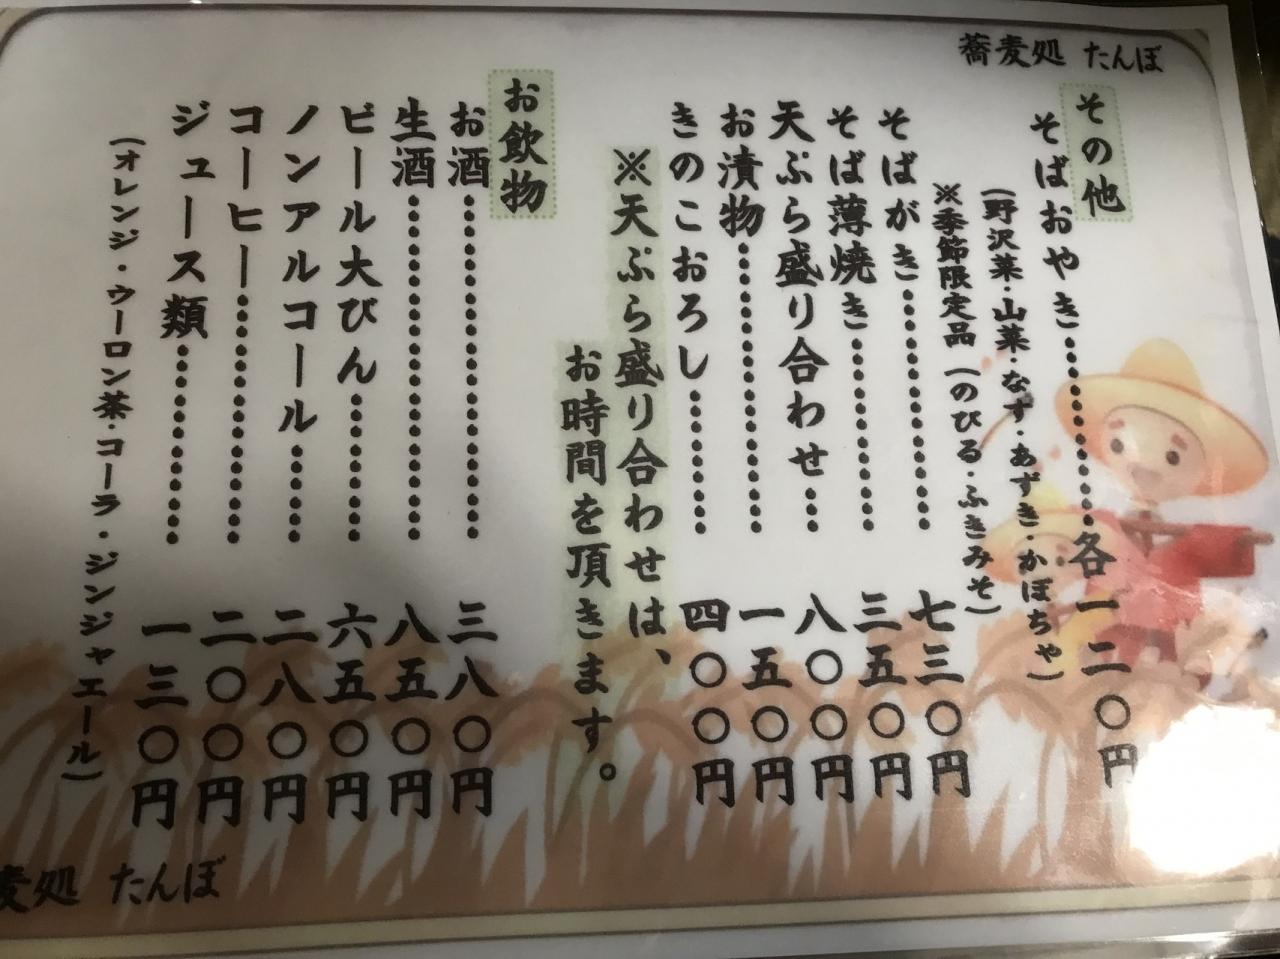 蕎麦処 たんぼ
その他
そばおやき……………各一二〇円
(野沢菜・山菜・なす・あずき・かぼちゃ)
※季節限定品(のびる・ふきみそ)
そばがき……………七三〇円
そば薄焼き……………三五〇円
天ぷら盛り合わせ……八〇〇円
お漬物……………一五〇円
きのこおろし……………四〇〇円
※天ぷら盛り合わせは、
お時間を頂きます。
お飲物
お酒……………三八〇円
生酒……………八五〇円
ビール大びん……………六五〇円
ノンアルコール……………二八〇円
コーヒー……………二〇〇円
ジュース類……………一三〇円
(オレンジ・ウーロン茶・コーラ・ジンジャエール)
麦処 たんぼ